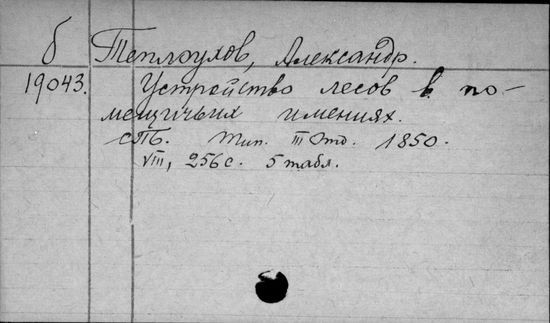 б
19043.
Теплоухов, Александр.
Устройство лесов в по-
мещичьих имениях.
СПБ. Тип. III Отд. 1850.
VIII, 256 с. 5 табл.